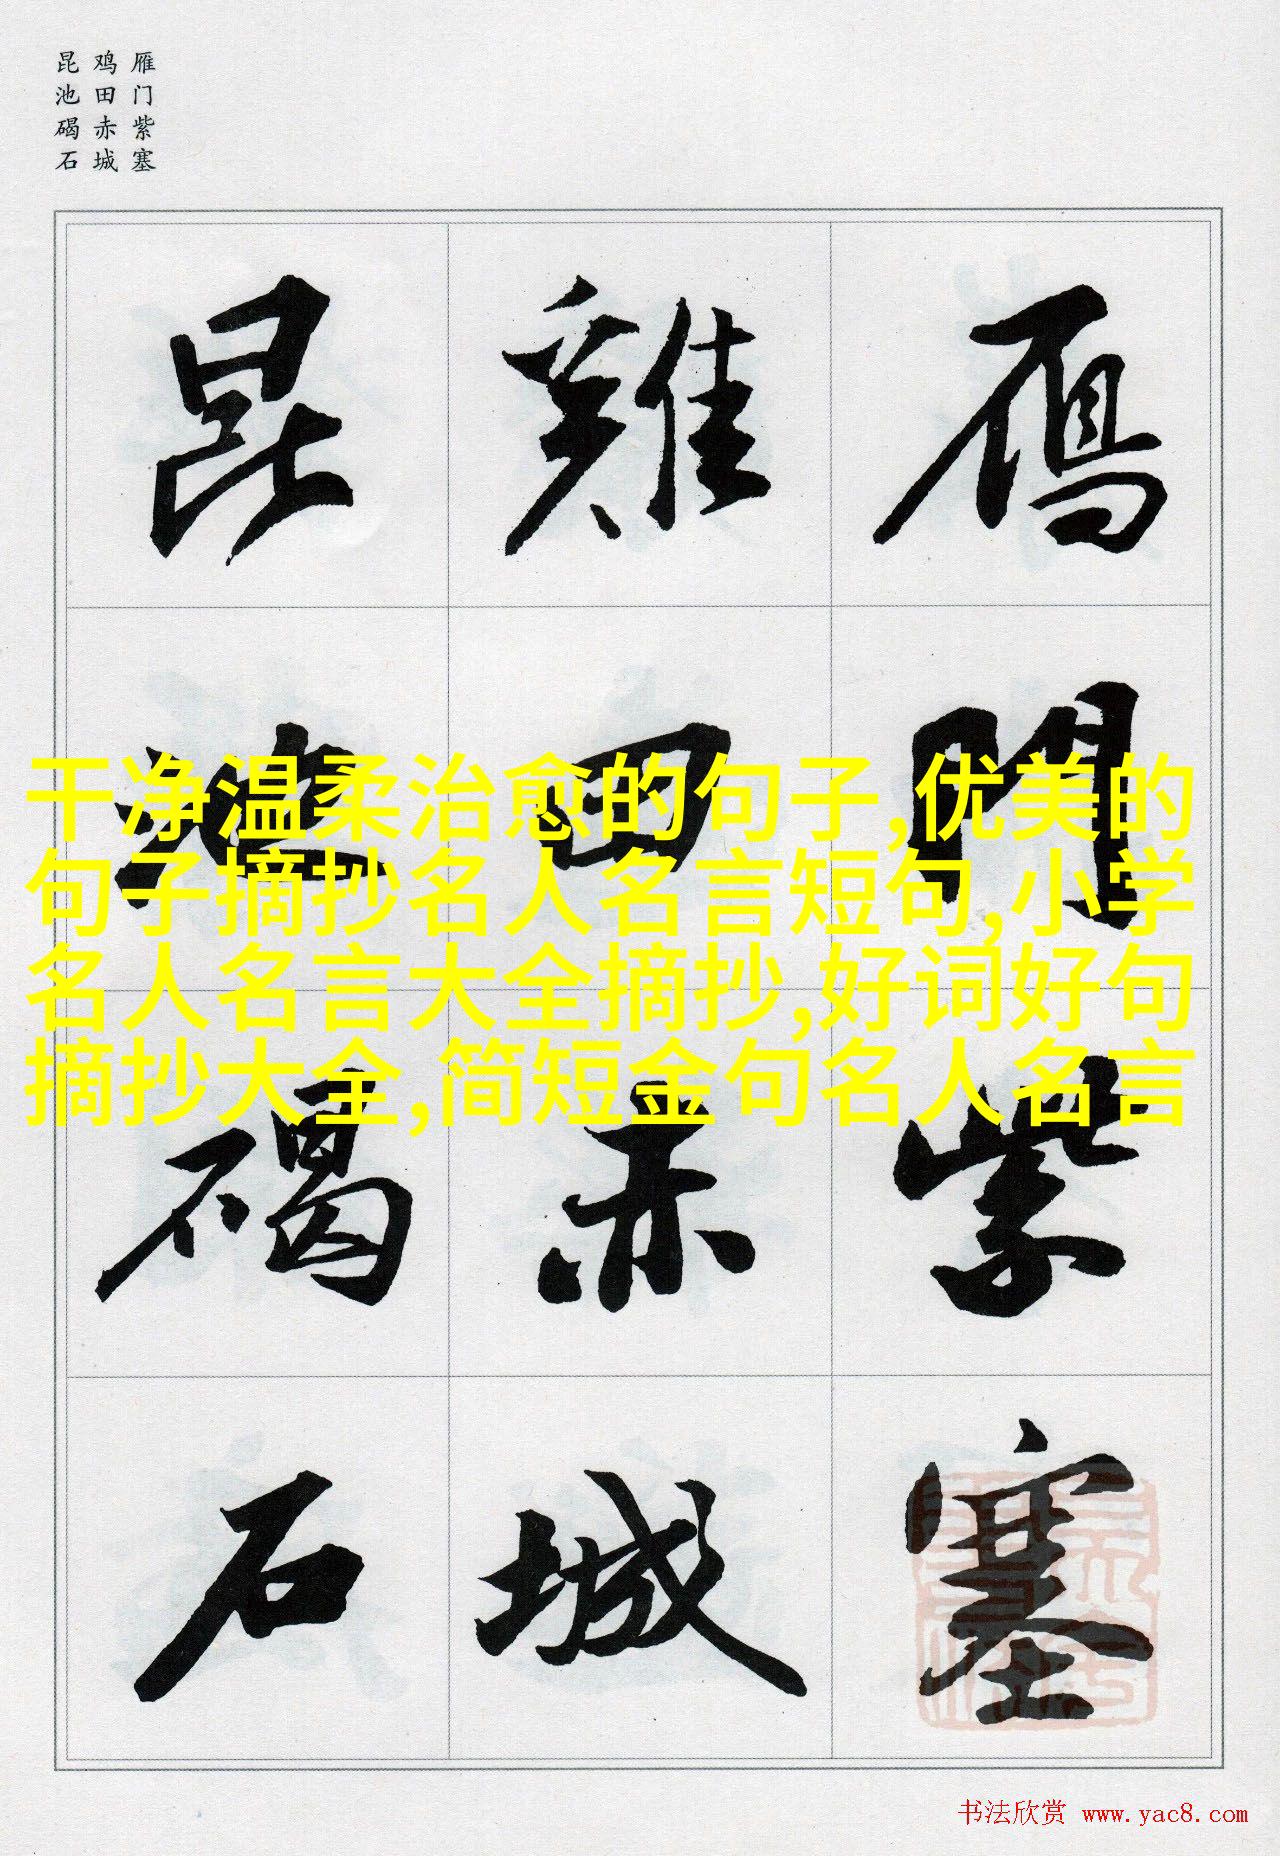 雁门紫塞
鸡田赤城
昆池碣石
雁門紫塞
雞田赤城
昆池碣石
干净温柔治愈的句子,优美的
句子摘抄名人名言短句,小学
名人名言大全摘抄,好词好句
摘抄大全,简短金句名人名言
书法欣赏 www.yac8.com